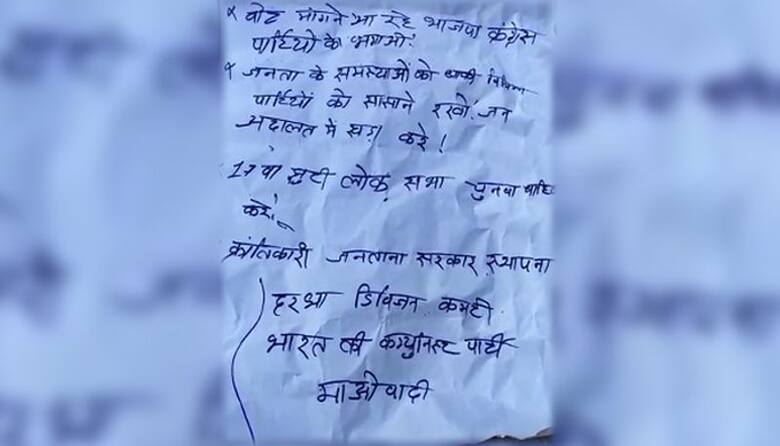 x वोट मांगने आ रहे भाजपा कांग्रेस
पार्टियों को भगाओ!
x जनता के समस्याओं को
पार्टियों को सासाने रखो! जन
अदालत में खड़ा करे!
17 वा लोक सभा चुनवा
करे!
क्रांतिकारी जनताना सरकार स्थापना
दरभा डिविजन कमेटी
भारत की कम्युनिस्ट पार्टी
माओवादी